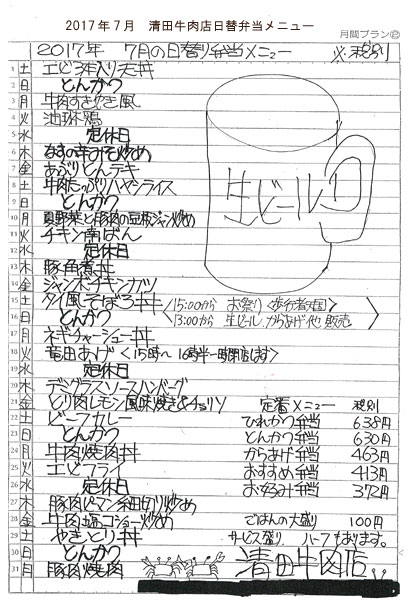 2017年7月 清田牛肉店日替弁当メニュー
月間プラン㉒
2017年 7月の日替り弁当メニュー ※税別
1 土 エビ3本入り天丼
2 日 とんかつ
3 月 牛肉すきやき風
4 火 油淋鶏
5 水 定休日
6 木 なすの辛みそ炒め
7 金 あぶりとんテキ
8 土 牛肉たっぷりハヤシライス
9 日 とんかつ
10 月 夏野菜と豚肉の豆板ジャン炒め
11 火 チキン南ばん
12 水 定休日
13 木 豚角煮丼
14 金 ジャンボチキンカツ
15 土 タイ風そぼろ丼 15:00から お祭り〈歩行者天国〉
16 日 とんかつ 13:00から 生ビール、からあげ他 販売
17 月 ネギチャーシュー丼
18 火 竜田あげ〈15時〜16時半一時閉店します〉
19 水 定休日
20 木 デミグラスソースハンバーグ
21 金 とり肉レモン風味焼き&チョリソ 定番メニュー 税別
22 土 ビーフカレー ひれかつ弁当 638円
23 日 とんかつ とんかつ弁当 630円
24 月 牛肉焼肉丼 からあげ弁当 463円
25 火 エビフライ おすすめ弁当 413円
26 水 定休日 お好み弁当 372円
27 木 豚肉ピーマン細切り炒め
28 金 牛肉塩コショー炒め ごはんの大盛り 100円
29 土 やきとり丼 サービス盛り、ハーフもあります。
30 日 とんかつ
31 月 豚肉焼肉 清田牛肉店
生ビール